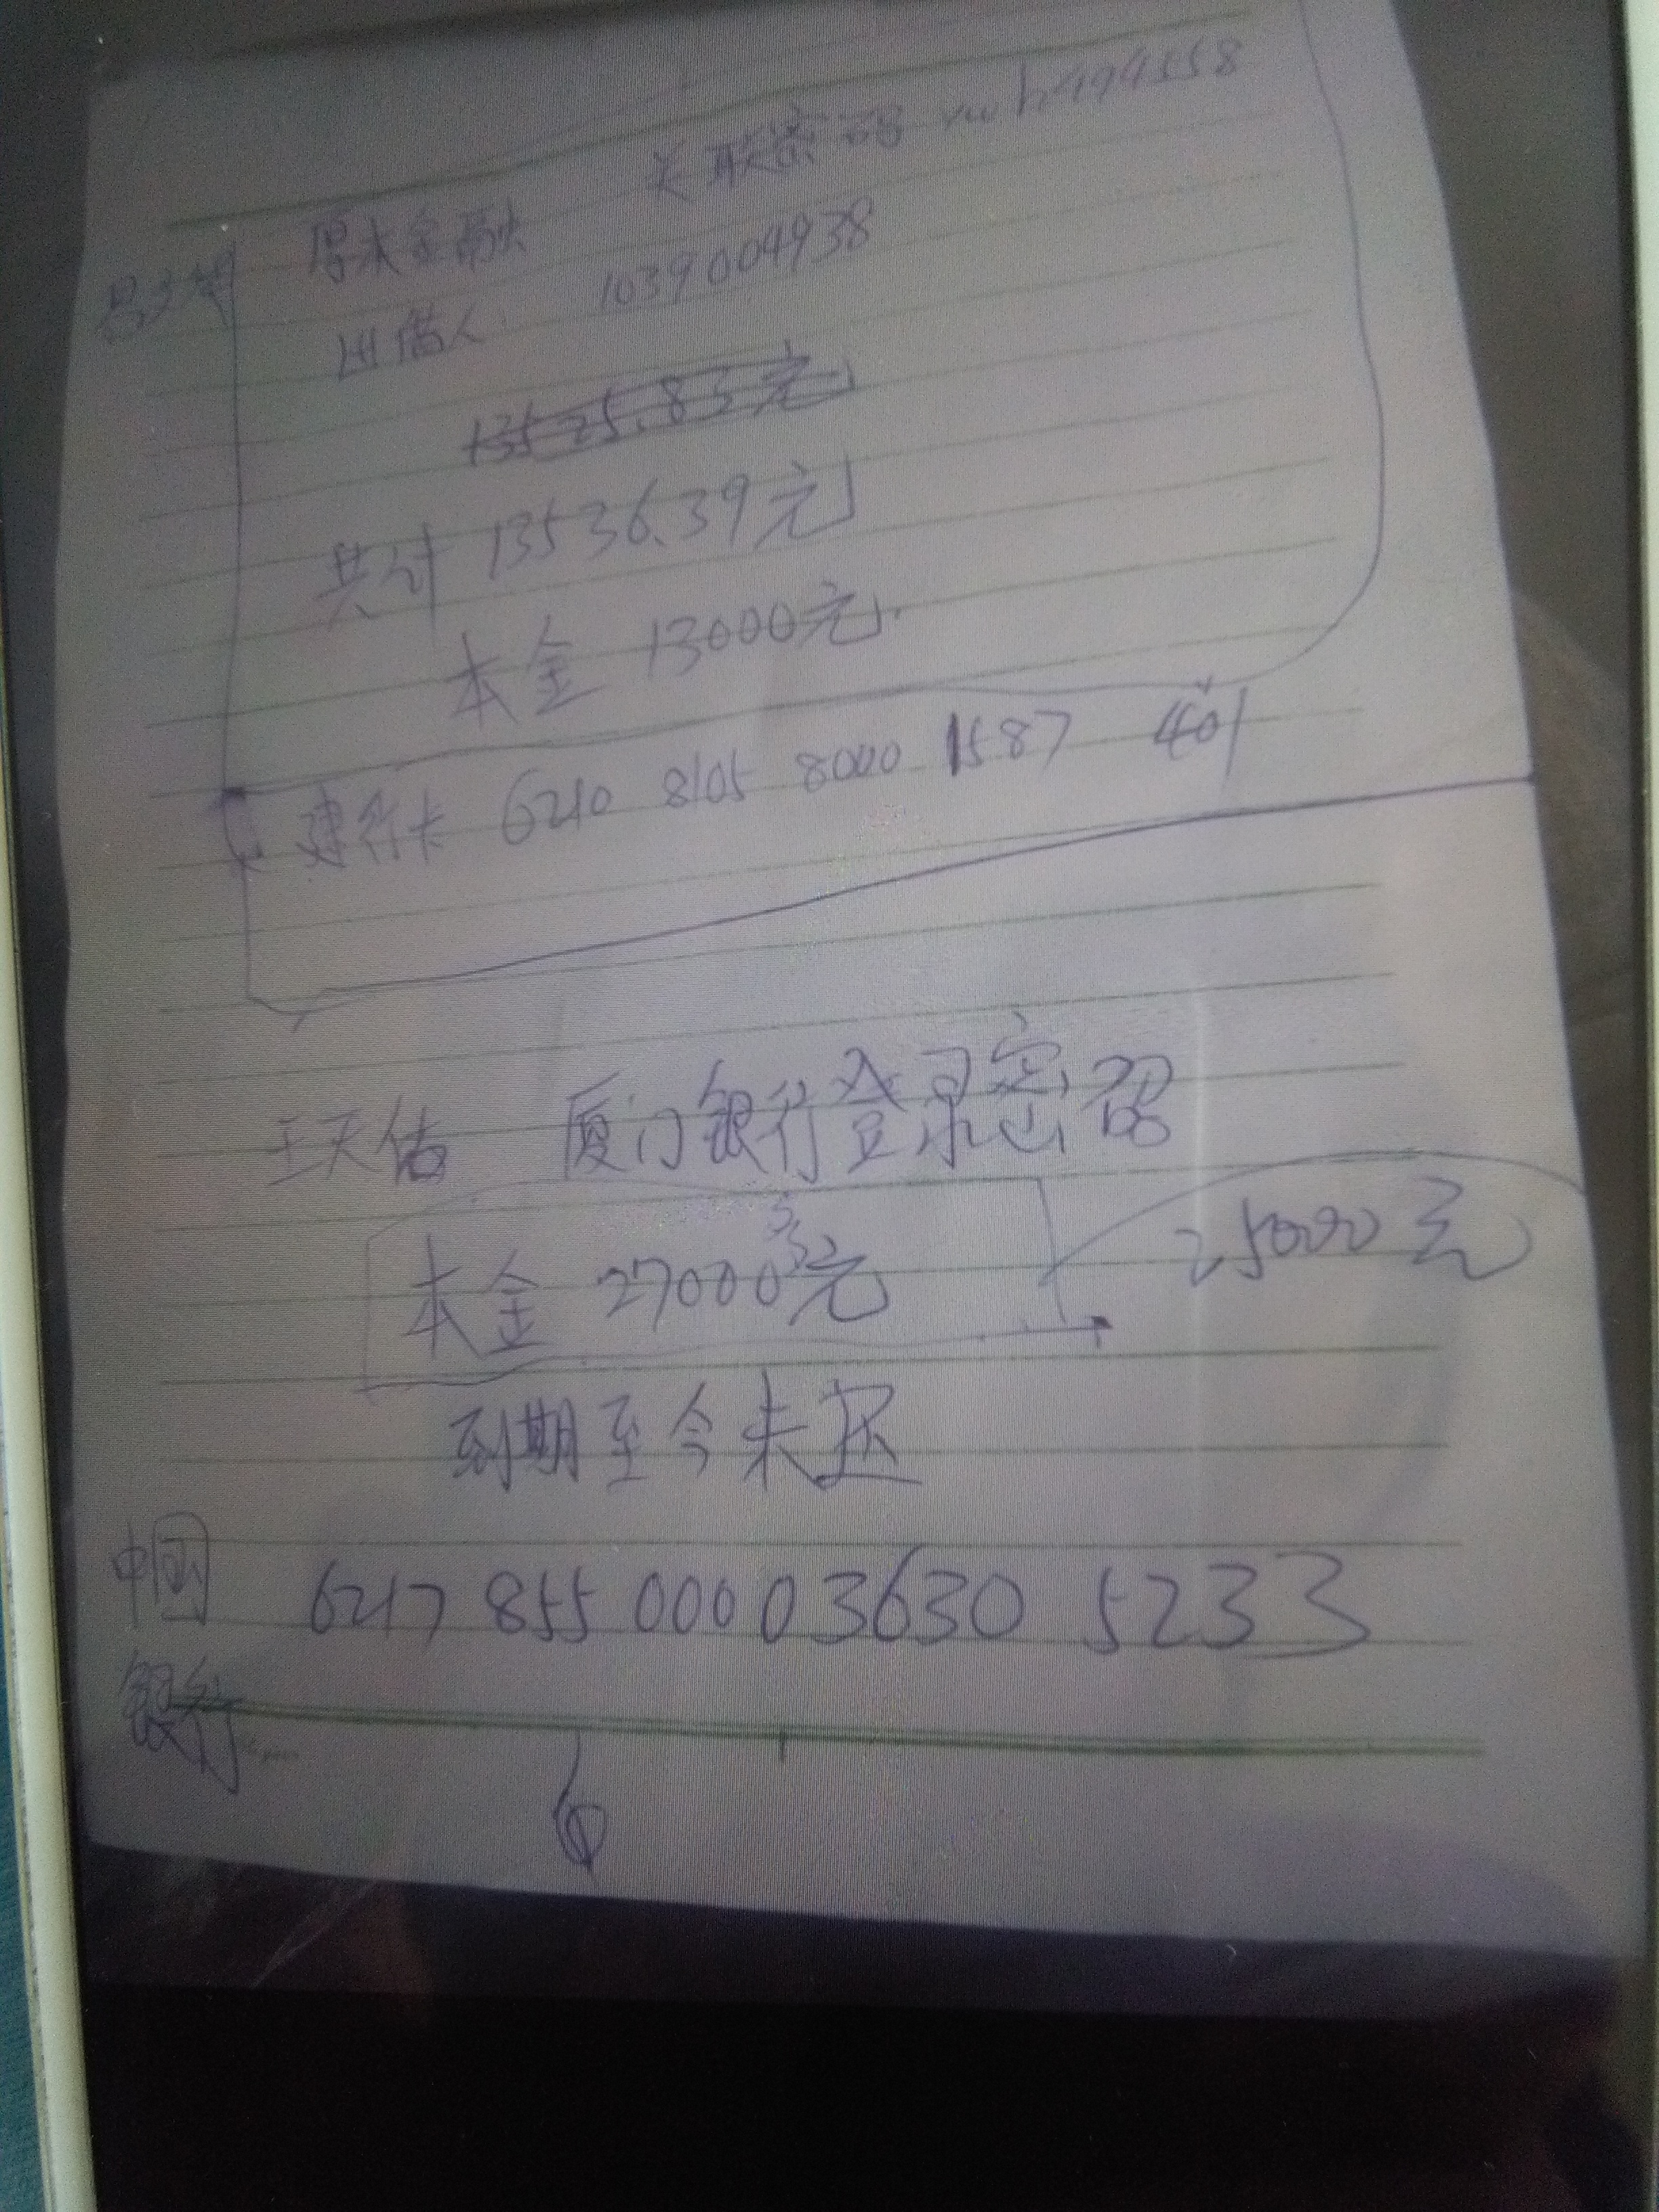 关联密码
厚本金融
出借人 1039004938
13525.83元
共计 13536.39元
本金 13000元
建行卡 6210 8105 8000 1587 401
王天佑 厦门银行登录密码
本金 27000元 25000元
到期至今未还
中国 6217 855 00003630 5233
银行